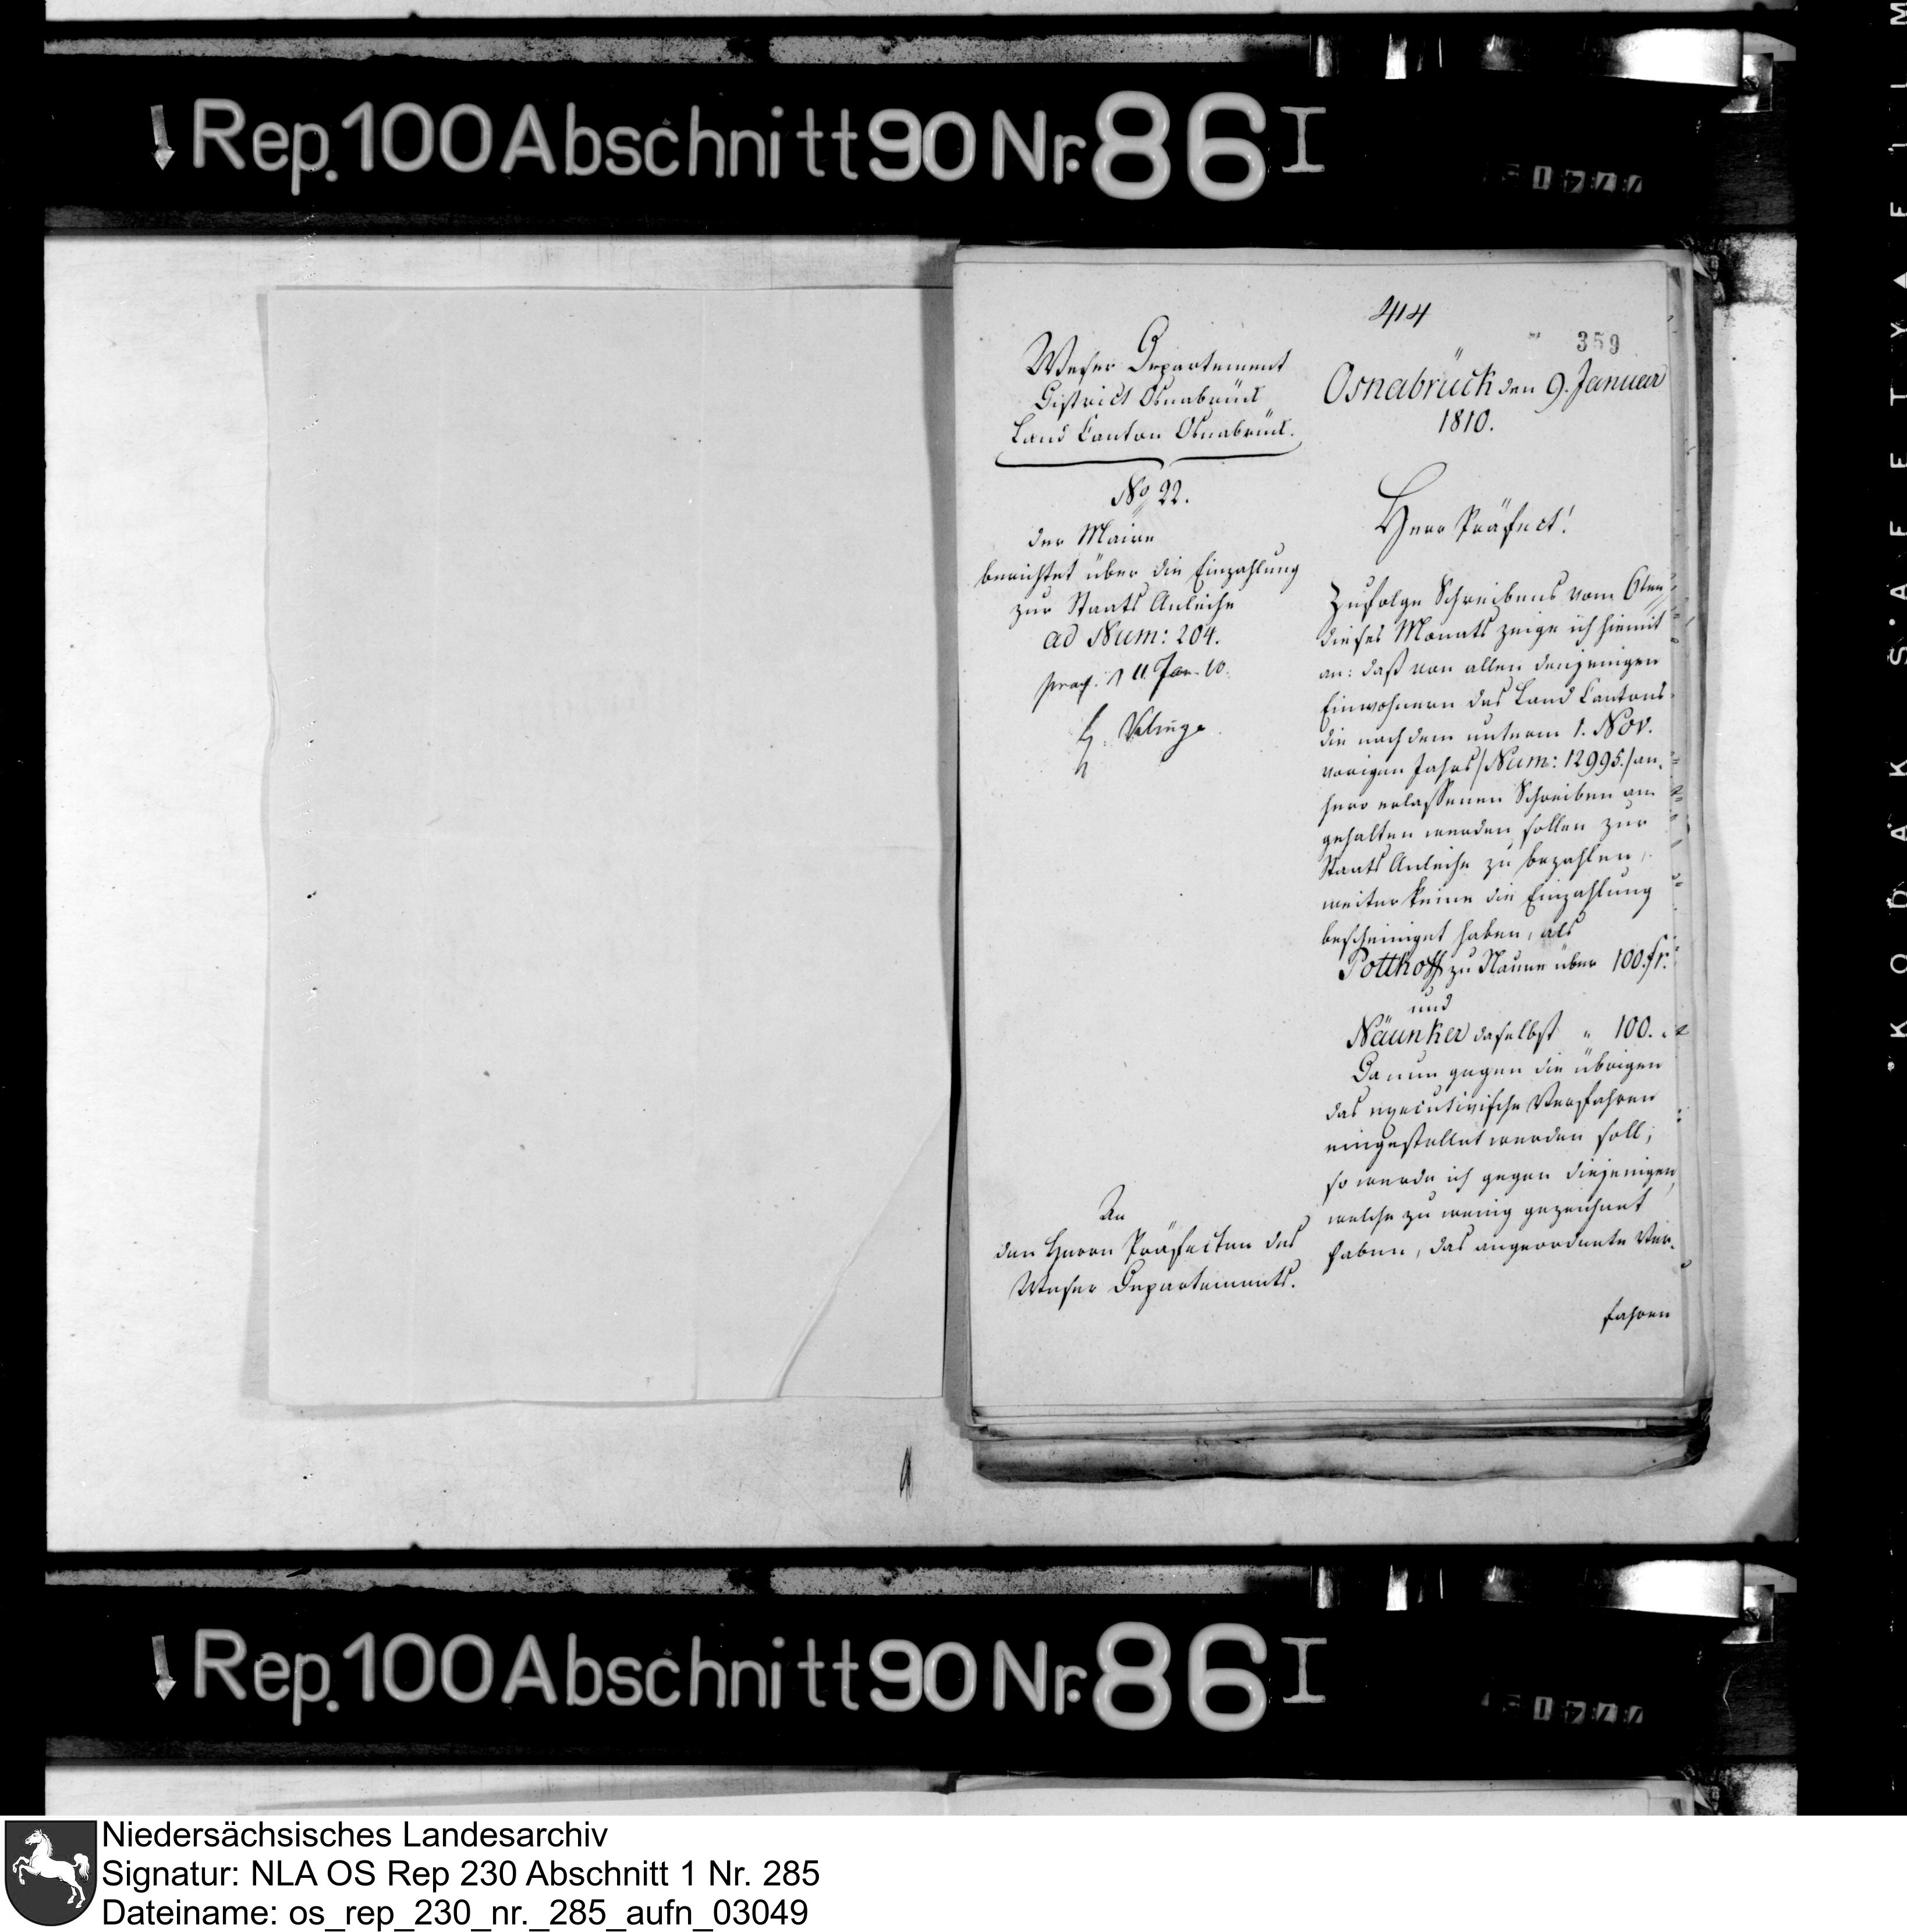 Rep. 100 Abschnitt 90 Nr. 86 I
414
359
Weser Departement
District Osnabrück
Land Canton Osnabrück.
No 22.
der Maire
berichtet über die Einzahlung
zur Staats Anleihe
ad Num: 204.
11 Jan. 10.
An
den Herrn Präfecten des
Weser Departements.
Osnabrück den 9. Januar
1810.
Herr Präfect!
Zufolge Schreibens vom 6ten
dieses Monats zeige ich hiemit
an: daß von allen denjenigen
Einwohnern des Land Cantons
die nach dem unterm 1. Nov.
vorigen Jahrs /Num: 12995./ an-
hero erlassenen Schreiben an
gehalten werden sollen zur
Staats Anleihe zu bezahlen,
weiter keine die Einzahlung
bescheiniget haben, als
Potthoff zu Naune über 100. fr.
und
Näunker daselbst " 100. "
Da nun gegen die übrigen
das executivische Verfahren
eingestellet werden soll;
so werde ich gegen diejenigen,
welche zu wenig gezeichnet
haben, das angeordnete Ver-
fahren
Rep. 100 Abschnitt 90 Nr. 86 I
KODAK SAFETY FILM
Niedersächsisches Landesarchiv
Signatur: NLA OS Rep 230 Abschnitt 1 Nr. 285
Dateiname: os_rep_230_nr._285_aufn_03049